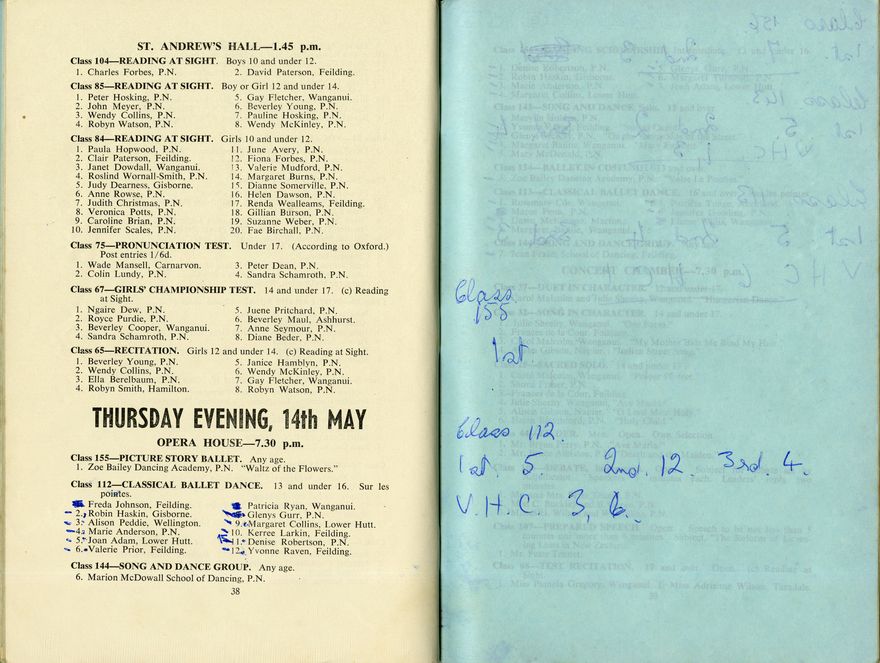 ST. ANDREW'S HALL—1.45 p.m.
Class 104—READING AT SIGHT. Boys 10 and under 12.
1. Charles Forbes, P.N. 2. David Paterson, Feilding.
Class 85—READING AT SIGHT. Boy or Girl 12 and under 14.
1. Peter Hosking, P.N. 5. Gay Fletcher, Wanganui.
2. John Meyer, P.N. 6. Beverley Young, P.N.
3. Wendy Collins, P.N. 7. Pauline Hosking, P.N.
4. Robyn Watson, P.N. 8. Wendy McKinley, P.N.
Class 84—READING AT SIGHT. Girls 10 and under 12.
1. Paula Hopwood, P.N. 11. June Avery, P.N.
2. Clair Paterson, Feilding. 12. Fiona Forbes, P.N.
3. Janet Dowdall, Wanganui. 13. Valerie Mudford, P.N.
4. Roslind Wornall-Smith, P.N. 14. Margaret Burns, P.N.
5. Judy Dearness, Gisborne. 15. Dianne Somerville, P.N.
6. Anne Rowse, P.N. 16. Helen Dawson, P.N.
7. Judith Christmas, P.N. 17. Renda Wealleams, Feilding.
8. Veronica Potts, P.N. 18. Gillian Burson, P.N.
9. Caroline Brian, P.N. 19. Suzanne Weber, P.N.
10. Jennifer Scales, P.N. 20. Fae Birchall, P.N.
Class 75—PRONUNCIATION TEST. Under 17. (According to Oxford.)
Post entries 1/6d.
1. Wade Mansell, Carnarvon. 3. Peter Dean, P.N.
2. Colin Lundy, P.N. 4. Sandra Schamroth, P.N.
Class 67—GIRLS' CHAMPIONSHIP TEST. 14 and under 17. (c) Reading
at Sight.
1. Ngaire Dew, P.N. 5. Juene Pritchard, P.N.
2. Royce Purdie, P.N. 6. Beverley Maul, Ashhurst.
3. Beverley Cooper, Wanganui. 7. Anne Seymour, P.N.
4. Sandra Schamroth, P.N. 8. Diane Beder, P.N.
Class 65—RECITATION. Girls 12 and under 14. (c) Reading at Sight.
1. Beverley Young, P.N. 5. Janice Hamblyn, P.N.
2. Wendy Collins, P.N. 6. Wendy McKinley, P.N.
3. Ella Berelbaum, P.N. 7. Gay Fletcher, Wanganui.
4. Robyn Smith, Hamilton. 8. Robyn Watson, P.N.
THURSDAY EVENING, 14th MAY
OPERA HOUSE—7.30 p.m.
Class 155—PICTURE STORY BALLET. Any age.
1. Zoe Bailey Dancing Academy, P.N. "Waltz of the Flowers."
Class 112—CLASSICAL BALLET DANCE. 13 and under 16. Sur les
pointes.
Freda Johnson, Feilding. Patricia Ryan, Wanganui.
2. Robin Haskin, Gisborne. Glenys Gurr, P.N.
3. Alison Peddie, Wellington. 9. Margaret Collins, Lower Hutt.
4. Marie Anderson, P.N. 10. Kerree Larkin, Feilding.
5. Joan Adam, Lower Hutt. 11. Denise Robertson, P.N.
6. Valerie Prior, Feilding. 12. Yvonne Raven, Feilding.
Class 144—SONG AND DANCE GROUP. Any age.
6. Marion McDowall School of Dancing, P.N.
38
Class
155
1st
Class 112.
1st. 5. 2nd. 12. 3rd. 4.
V.H.C. 3, 6.